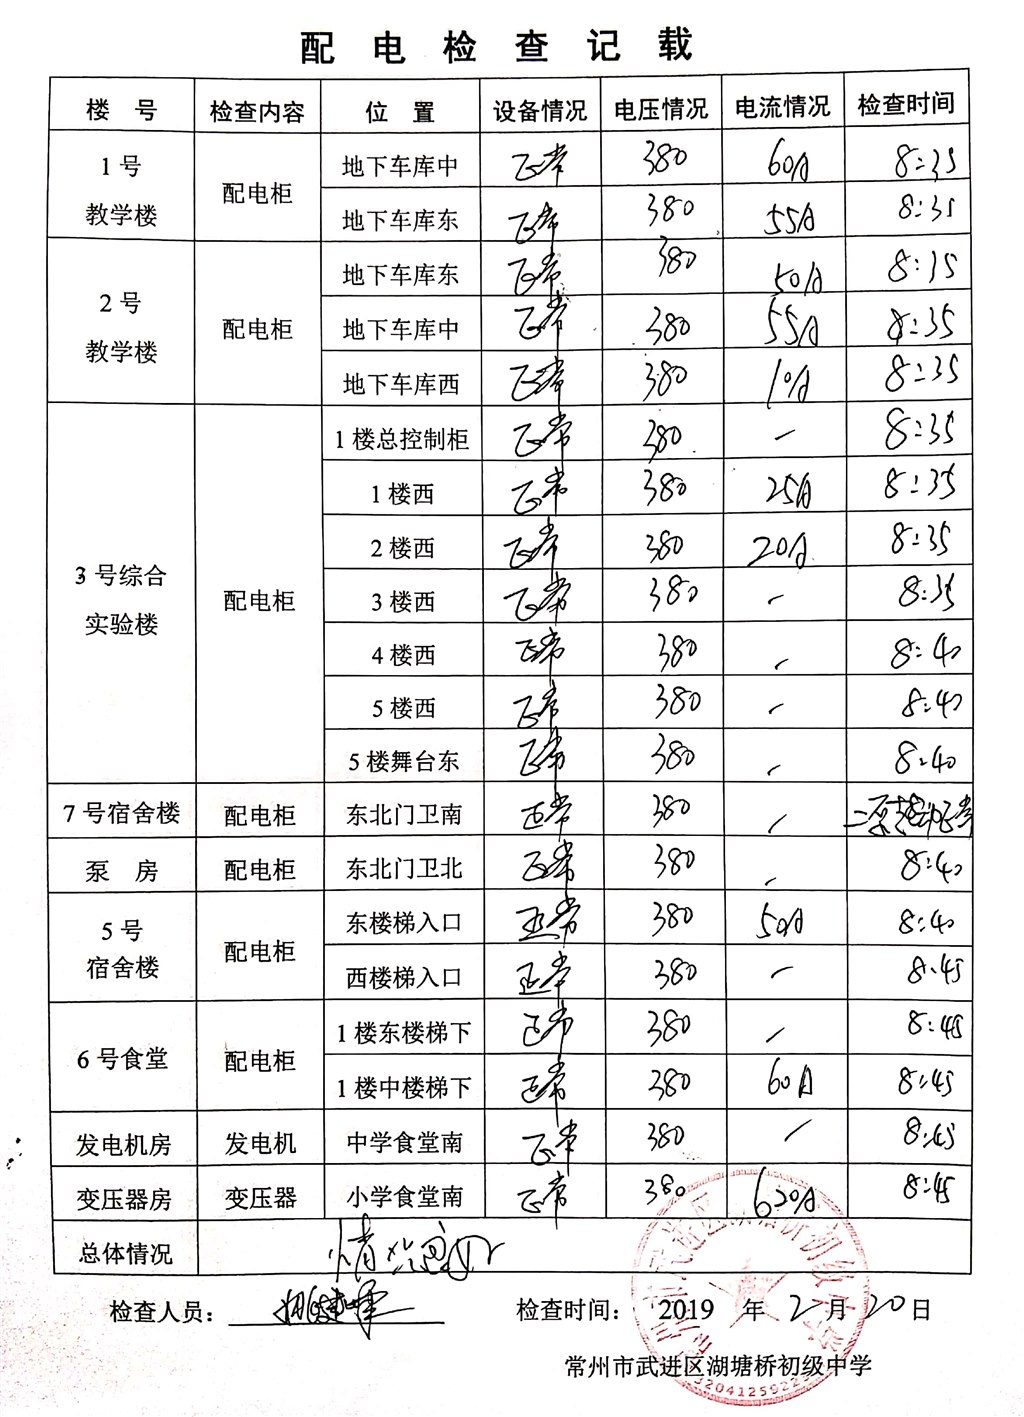 配电检查记载
楼号 检查内容 位置 设备情况 电压情况 电流情况 检查时间
1号教学楼 配电柜 地下车库中 正常 380 60A 8:35
地下车库东 正常 380 55A 8:35
2号教学楼 配电柜 地下车库东 正常 380 50A 8:35
地下车库中 正常 380 55A 8:35
地下车库西 正常 380 10A 8:35
3号综合实验楼 配电柜 1楼总控制柜 正常 380 - 8:35
1楼西 正常 380 25A 8:35
2楼西 正常 380 20A 8:35
3楼西 正常 380 - 8:35
4楼西 正常 380 - 8:40
5楼西 正常 380 - 8:40
5楼舞台东 正常 380 - 8:40
7号宿舍楼 配电柜 东北门卫南 正常 380 /
泵房 配电柜 东北门卫北 正常 380 - 8:40
5号宿舍楼 配电柜 东楼梯入口 正常 380 50A 8:40
西楼梯入口 正常 380 - 8:45
6号食堂 配电柜 1楼东楼梯下 正常 380 / 8:45
1楼中楼梯下 正常 380 60A 8:45
发电机房 发电机 中学食堂南 正常 380 / 8:45
变压器房 变压器 小学食堂南 正常 380 620A 8:45
总体情况 情况良好
检查人员：
检查时间： 2019 年 2 月 20 日
常州市武进区湖塘桥初级中学